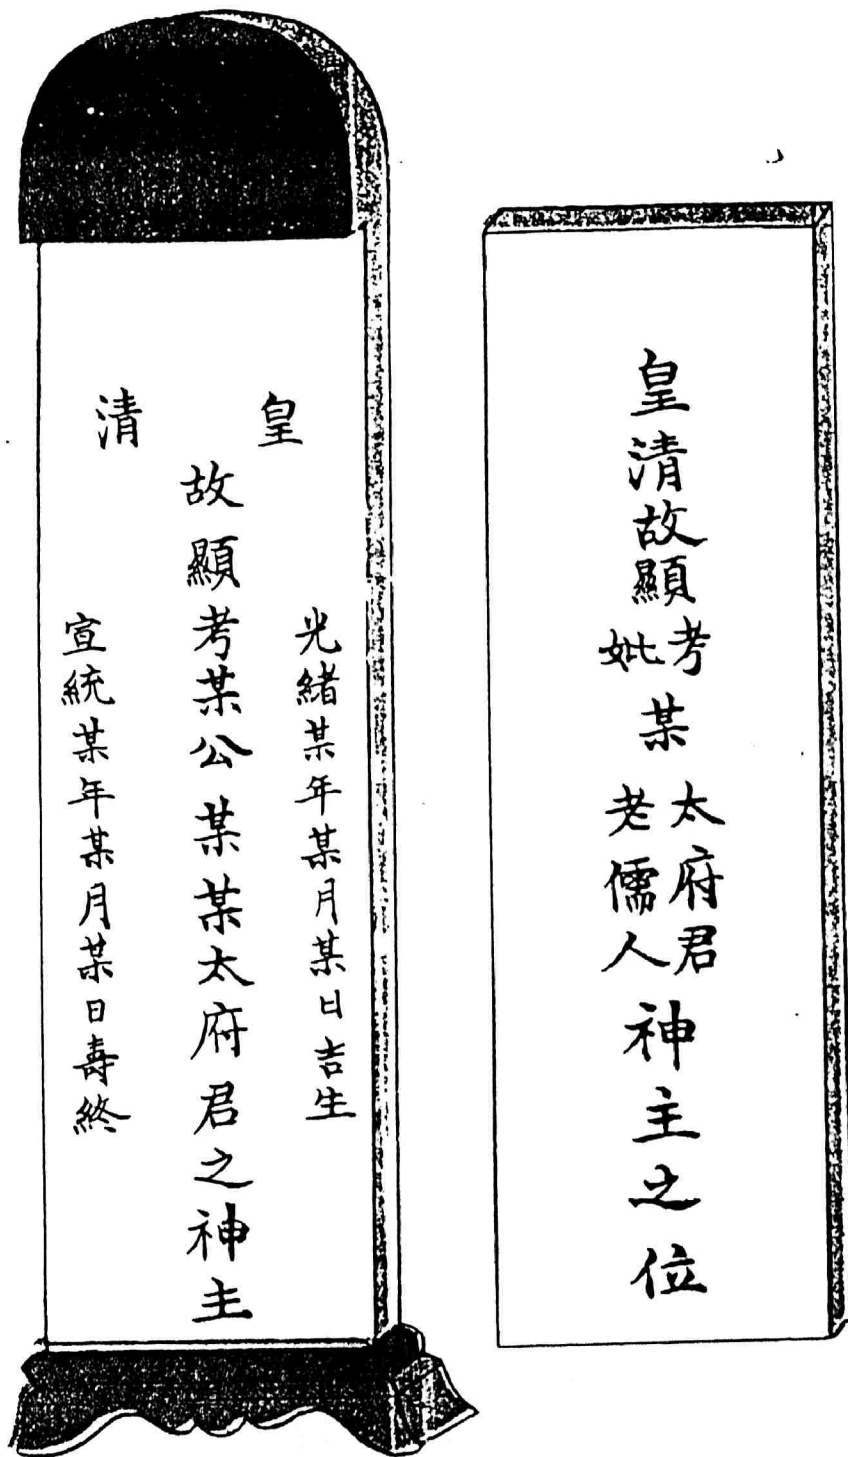 皇清故顯
考妣
某
太府君
老儒人
神主之位
皇清
光緒某年某月某日吉生
故顯考某公某某太府君之神主
宣統某年某月某日壽終